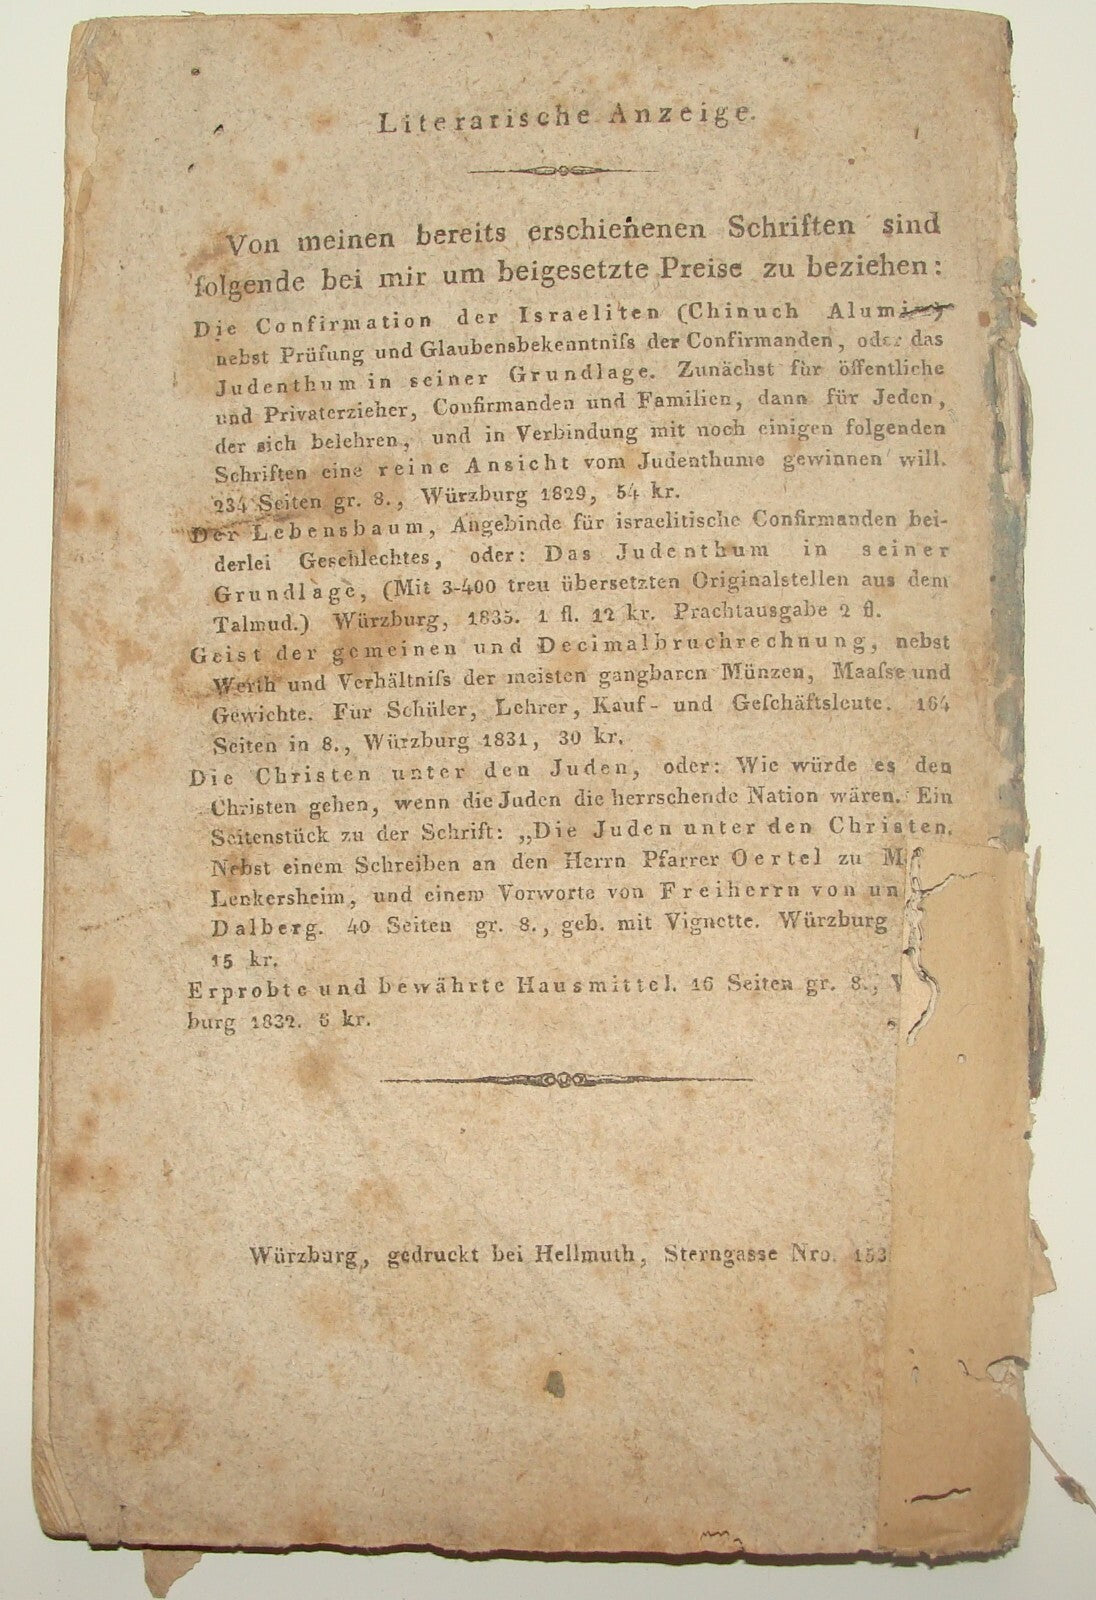 Literarische Anzeige.
Von meinen bereits erschienenen Schriften sind
folgende bei mir um beigesetzte Preise zu beziehen:
Die Confirmation der Israeliten (Chinuch
nebst Prüfung und Glaubensbekenntniſs der Confirmanden, oder das
Judenthum in seiner Grundlage. Zunächst für öffentliche
und Privaterzieher, Confirmanden und Familien, dann für Jeden,
der sich belehren, und in Verbindung mit noch einigen folgenden
Schriften eine reine Ansicht vom Judenthume gewinnen will.
234 Seiten gr. 8., Würzburg 1829, 54 kr.
Der Lebensbaum, Angebinde für israelitische Confirmanden bei-
derlei Geschlechtes, oder: Das Judenthum in seiner
Grundlage, (Mit 3-400 treu übersetzten Originalstellen aus dem
Talmud.) Würzburg, 1835. 1 fl. 12 kr. Prachtausgabe 2 fl.
Geist der gemeinen und Decimalbruchrechnung, nebst
Werth und Verhältniſs der meisten gangbaren Münzen, Maaſse und
Gewichte. Für Schüler, Lehrer, Kauf- und Geſchäftsleute. 164
Seiten in 8., Würzburg 1831, 30 kr.
Die Christen unter den Juden, oder: Wie würde es den
Christen gehen, wenn die Juden die herrschende Nation wären. Ein
Seitenstück zu der Schrift: „Die Juden unter den Christen.
Nebst einem Schreiben an den Herrn Pfarrer Oertel zu
Lenkersheim, und einem Vorworte von Freiherrn von un
Dalberg. 40 Seiten gr. 8., geb. mit Vignette. Würzburg
15 kr.
Erprobte und bewährte Hausmittel. 16 Seiten gr. 8.,
burg 1832. 6 kr.
Würzburg, gedruckt bei Hellmuth, Sterngasse Nro. 153